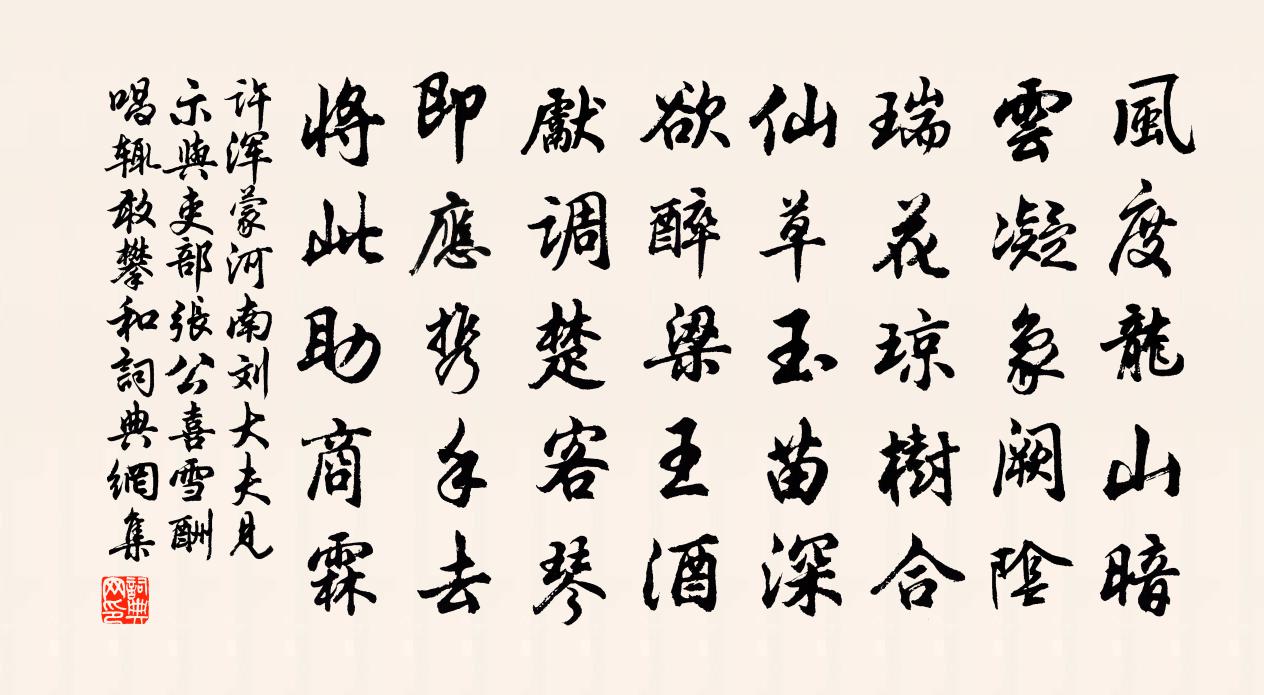 風度龍山暗
雲凝象阙陰
瑞花琼樹合
仙草玉苗深
欲醉梁王酒
獻调楚客琴
即應携手去
將此助商霖
许浑蒙河南刘大夫見
示與吏部張公喜雪酬
唱輒敢攀和詞典網集
詞典网印